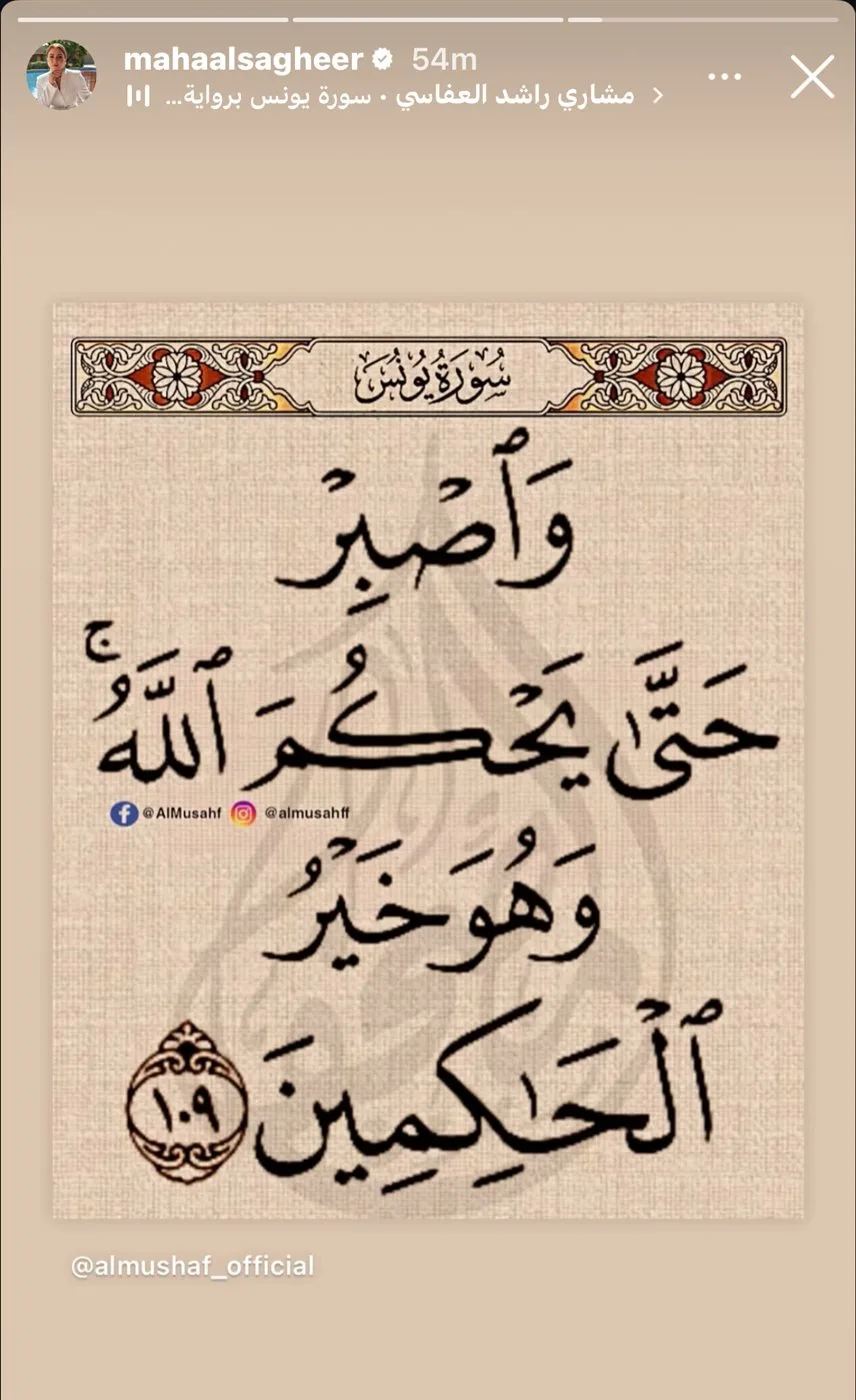 mahaalsagheer 54m
مشاري راشد العفاسي • سورة يونس برواية...
سُورَةُ يُونُسَ
وَٱصْبِرْ
حَتَّىٰ يَحْكُمَ ٱللَّهُ ۚ
@AlMusahf @almusahff
وَهُوَ خَيْرُ
ٱلْحَـٰكِمِينَ ١٠٩
@almushaf_official